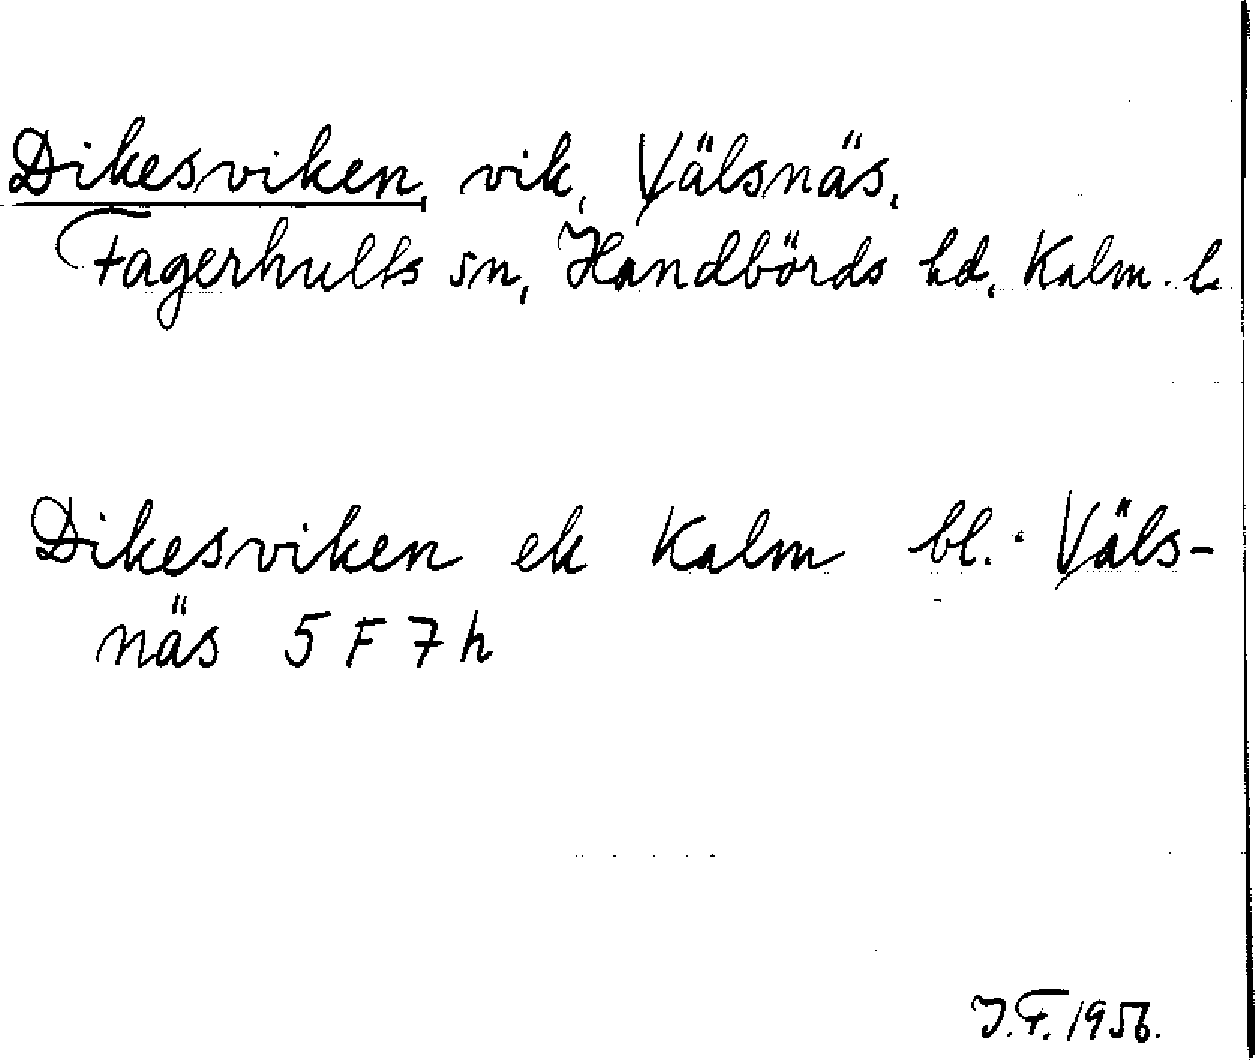 Dikesviken, vik, Välsnäs,
Fagerhults sn, Handbörds hd, Kalm. l.
Dikesviken ek Kalm bl. Väls-
näs 5 F 7 h
J.F. 1956.